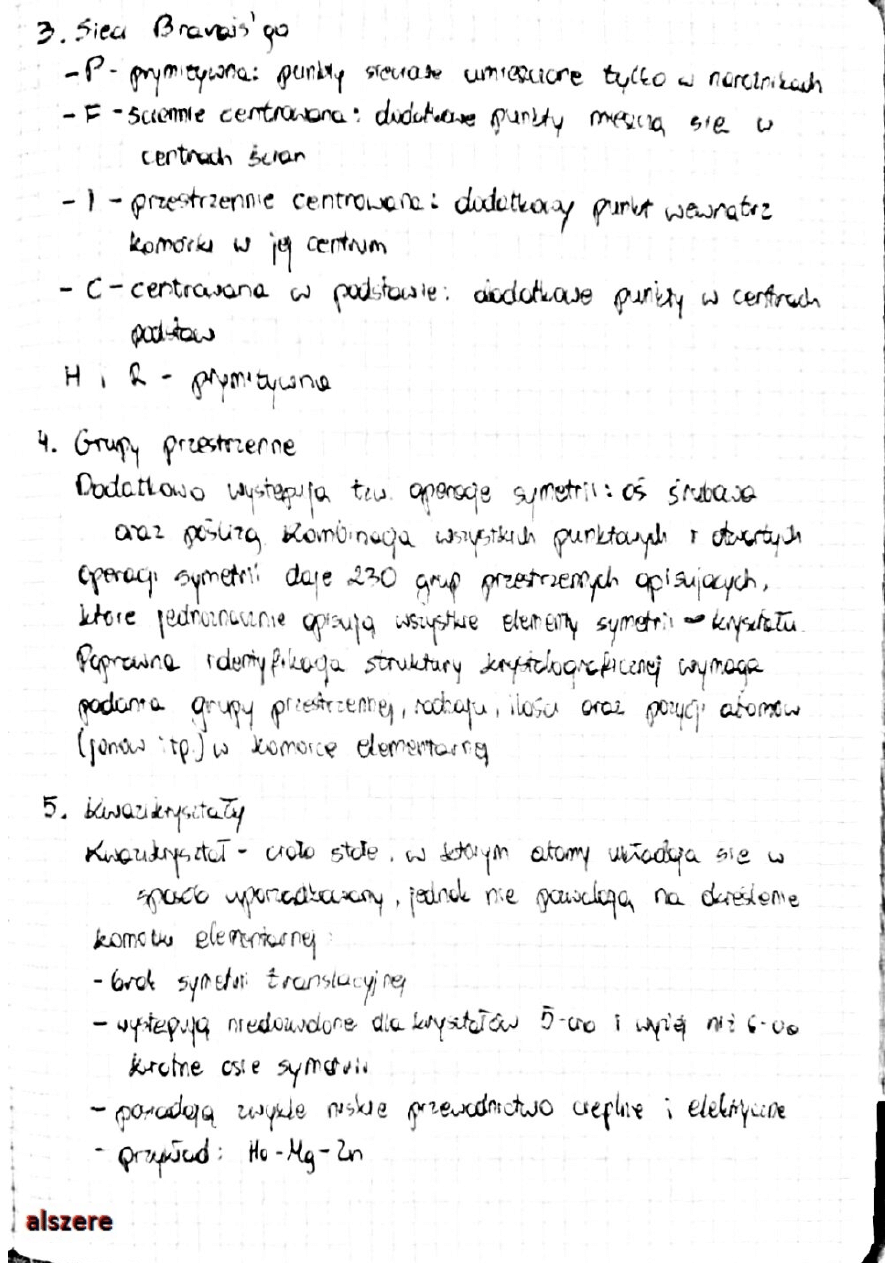 3. Sieci Bravais'go
- P - prymitywna: punkty sieciowe umieszczone tylko w narożnikach
- F - ściennie centrowana: dodatkowe punkty mieszczą się w
centrach ścian
- I - przestrzennie centrowana: dodatkowy punkt wewnątrz
komórki w jej centrum
- C - centrowana w podstawie: dodatkowe punkty w centrach
podstaw
H i R - prymitywne
4. Grupy przestrzenne
Dodatkowo występują tzw. operacje symetrii: oś śrubowa
oraz poślizg. Kombinacja wszystkich punktowych i otwartych
operacji symetrii daje 230 grup przestrzennych opisujących,
które jednoznacznie opisują wszystkie elementy symetrii kryształu.
Poprawna identyfikacja struktury krystalograficznej wymaga
podania grupy przestrzennej, rodzaju, ilości oraz pozycji atomów
(jonów itp.) w komórce elementarnej
5. Kwazikryształy
Kwazikryształ - ciało stałe, w którym atomy układają się w
sposób uporządkowany, jednak nie pozwalają na określenie
komórki elementarnej:
- brak symetrii translacyjnej
- występują niedozwolone dla kryształów 5-cio i wyżej niż 6-cio
krotne osie symetrii
- posiadają zwykle niskie przewodnictwo cieplne i elektryczne
- przykład: Ho-Mg-Zn
alszere